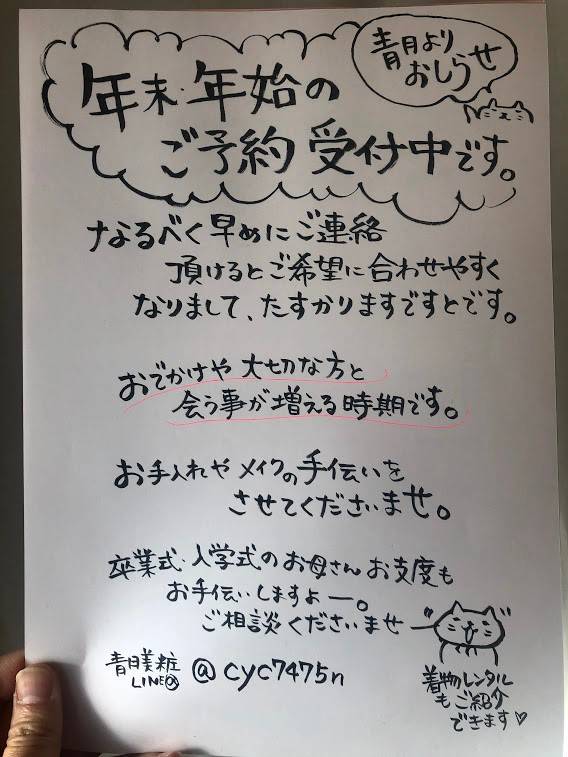 青月より
おしらせ
年末・年始の
ご予約受付中です。
なるべく早めにご連絡
頂けるとご希望に合わせやすく
なりまして、たすかりますですとです。
おでかけや大切な方と
会う事が増える時期です。
お手入れやメイクの手伝いを
させてくださいませ。
卒業式・入学式のお母さんお支度も
お手伝いしますよー。
ご相談くださいませ
青月美粧
LINE@ @cyc7475n
着物レンタル
もご紹介
できます♡